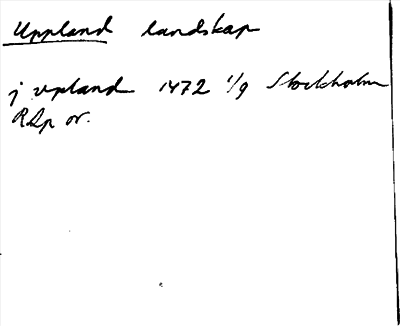 Uppland landskap
j vpland 1472 1/9 Stockholm
RAp or.